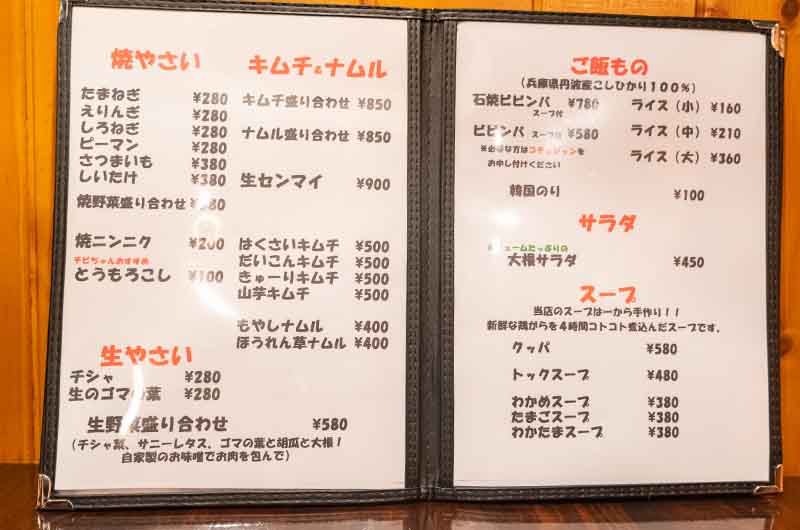 焼やさい
たまねぎ ¥280
えりんぎ ¥280
しろねぎ ¥280
ピーマン ¥280
さつまいも ¥380
しいたけ ¥380
焼野菜盛り合わせ
焼ニンニク ¥200
チビちゃんおすすめ
とうもろこし ¥100
生やさい
チシャ ¥280
生のゴマの葉 ¥280
生野菜盛り合わせ ¥580
(チシャ菜、サニーレタス、ゴマの葉と胡瓜と大根!
自家製のお味噌でお肉を包んで)
キムチ&ナムル
キムチ盛り合わせ ¥850
ナムル盛り合わせ ¥850
生センマイ ¥900
はくさいキムチ ¥500
だいこんキムチ ¥500
きゅーりキムチ ¥500
山芋キムチ ¥500
もやしナムル ¥400
ほうれん草ナムル ¥400
ご飯もの
(兵庫県丹波産こしひかり100%)
石焼ビビンバ ¥780
スープ付
ビビンバ スープ付 ¥580
※必要な方はコチュジャンを
お申し付けください
ライス(小) ¥160
ライス(中) ¥210
ライス(大) ¥360
韓国のり ¥100
サラダ
ボリュームたっぷりの
大根サラダ ¥450
スープ
当店のスープは一から手作り!!
新鮮な鶏がらを4時間コトコト煮込んだスープです。
クッパ ¥580
トックスープ ¥480
わかめスープ ¥380
たまごスープ ¥380
わかたまスープ ¥380